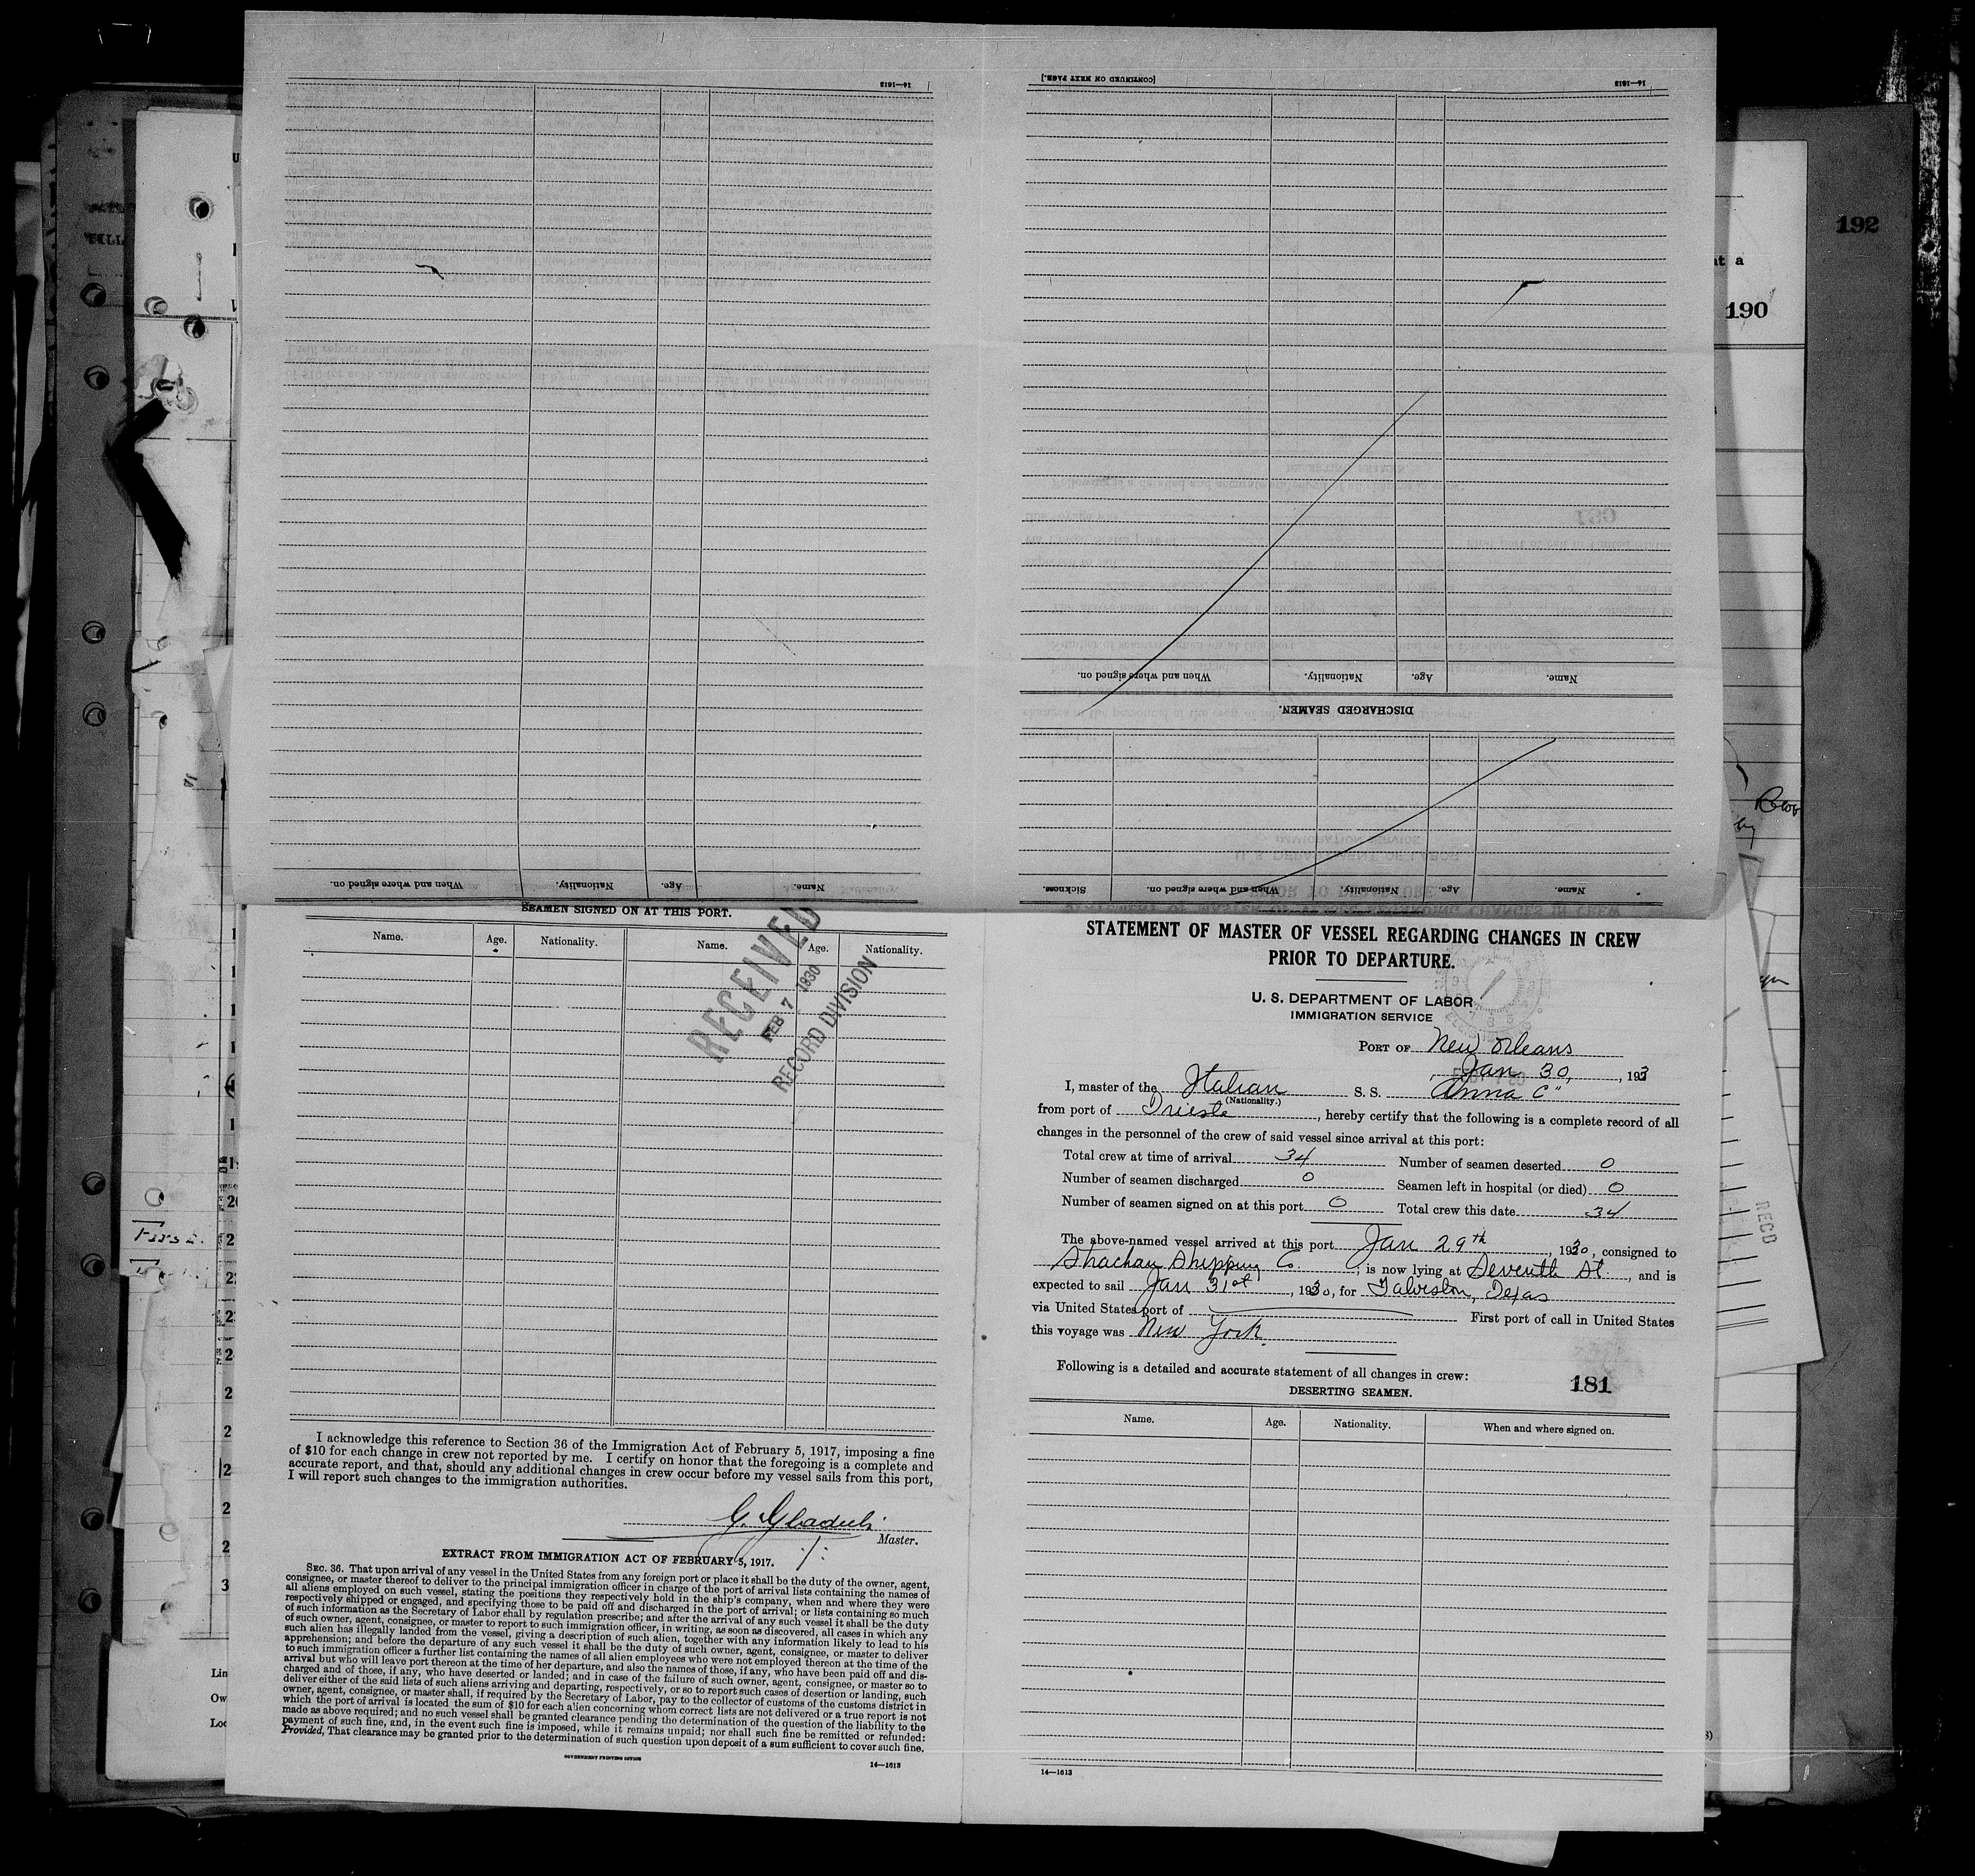 14—1613
[CONTINUED ON NEXT PAGE.]
14—1613
192
190
at a
When and where signed on.
Nationality.
Age.
Name.
DISCHARGED SEAMEN.
When and where signed on.
Nationality.
Age.
Name.
Sickness.
When and where signed on.
Nationality.
Age.
Name.
SEAMEN SIGNED ON AT THIS PORT.
Name.
Age.
Nationality.
Name.
Age.
Nationality.
RECEIVED
FEB 7 1930
RECORD DIVISION
I acknowledge this reference to Section 36 of the Immigration Act of February 5, 1917, imposing a fine
of $10 for each change in crew not reported by me. I certify on honor that the foregoing is a complete and
accurate report, and that, should any additional changes in crew occur before my vessel sails from this port,
I will report such changes to the immigration authorities.
G.
Master.
EXTRACT FROM IMMIGRATION ACT OF FEBRUARY 5, 1917.
SEC. 36. That upon arrival of any vessel in the United States from any foreign port or place it shall be the duty of the owner, agent,
consignee, or master thereof to deliver to the principal immigration officer in charge of the port of arrival lists containing the names of
all aliens employed on such vessel, stating the positions they respectively hold in the ship's company, when and where they were
respectively shipped or engaged, and specifying those to be paid off and discharged in the port of arrival; or lists containing so much
of such information as the Secretary of Labor shall by regulation prescribe; and after the arrival of any such vessel it shall be the duty
of such owner, agent, consignee, or master to report to such immigration officer, in writing, as soon as discovered, all cases in which any
such alien has illegally landed from the vessel, giving a description of such alien, together with any information likely to lead to his
apprehension; and before the departure of any such vessel it shall be the duty of such owner, agent, consignee, or master to deliver
to such immigration officer a further list containing the names of all alien employees who were not employed thereon at the time of the
arrival but who will leave port thereon at the time of her departure, and also the names of those, if any, who have been paid off and dis-
charged and of those, if any, who have deserted or landed; and in case of the failure of such owner, agent, consignee, or master so to
deliver either of the said lists of such aliens arriving and departing, respectively, or so to report such cases of desertion or landing, such
owner, agent, consignee, or master shall, if required by the Secretary of Labor, pay to the collector of customs of the customs district in
which the port of arrival is located the sum of $10 for each alien concerning whom correct lists are not delivered or a true report is not
made as above required; and no such vessel shall be granted clearance pending the determination of the question of the liability to the
payment of such fine, and, in the event such fine is imposed, while it remains unpaid; nor shall such fine be remitted or refunded:
Provided, That clearance may be granted prior to the determination of such question upon deposit of a sum sufficient to cover such fine.
GOVERNMENT PRINTING OFFICE
14—1613
STATEMENT OF MASTER OF VESSEL REGARDING CHANGES IN CREW
PRIOR TO DEPARTURE.
U. S. DEPARTMENT OF LABOR
IMMIGRATION SERVICE
PORT OF New Orleans
Jan 30, , 193
I, master of the Italian S. S. Anna C"
(Nationality.)
from port of Trieste , hereby certify that the following is a complete record of all
changes in the personnel of the crew of said vessel since arrival at this port:
Total crew at time of arrival 34 Number of seamen deserted 0
Number of seamen discharged 0 Seamen left in hospital (or died) 0
Number of seamen signed on at this port 0 Total crew this date 34
The above-named vessel arrived at this port Jan 29th , 1930, consigned to
Strachan Shipping Co , is now lying at Seventh St , and is
expected to sail Jan 31st , 1930, for Galveston, Texas
via United States port of First port of call in United States
this voyage was New York.
Following is a detailed and accurate statement of all changes in crew:
181
DESERTING SEAMEN.
Name.
Age.
Nationality.
When and where signed on.
14—1613
RECD
First.